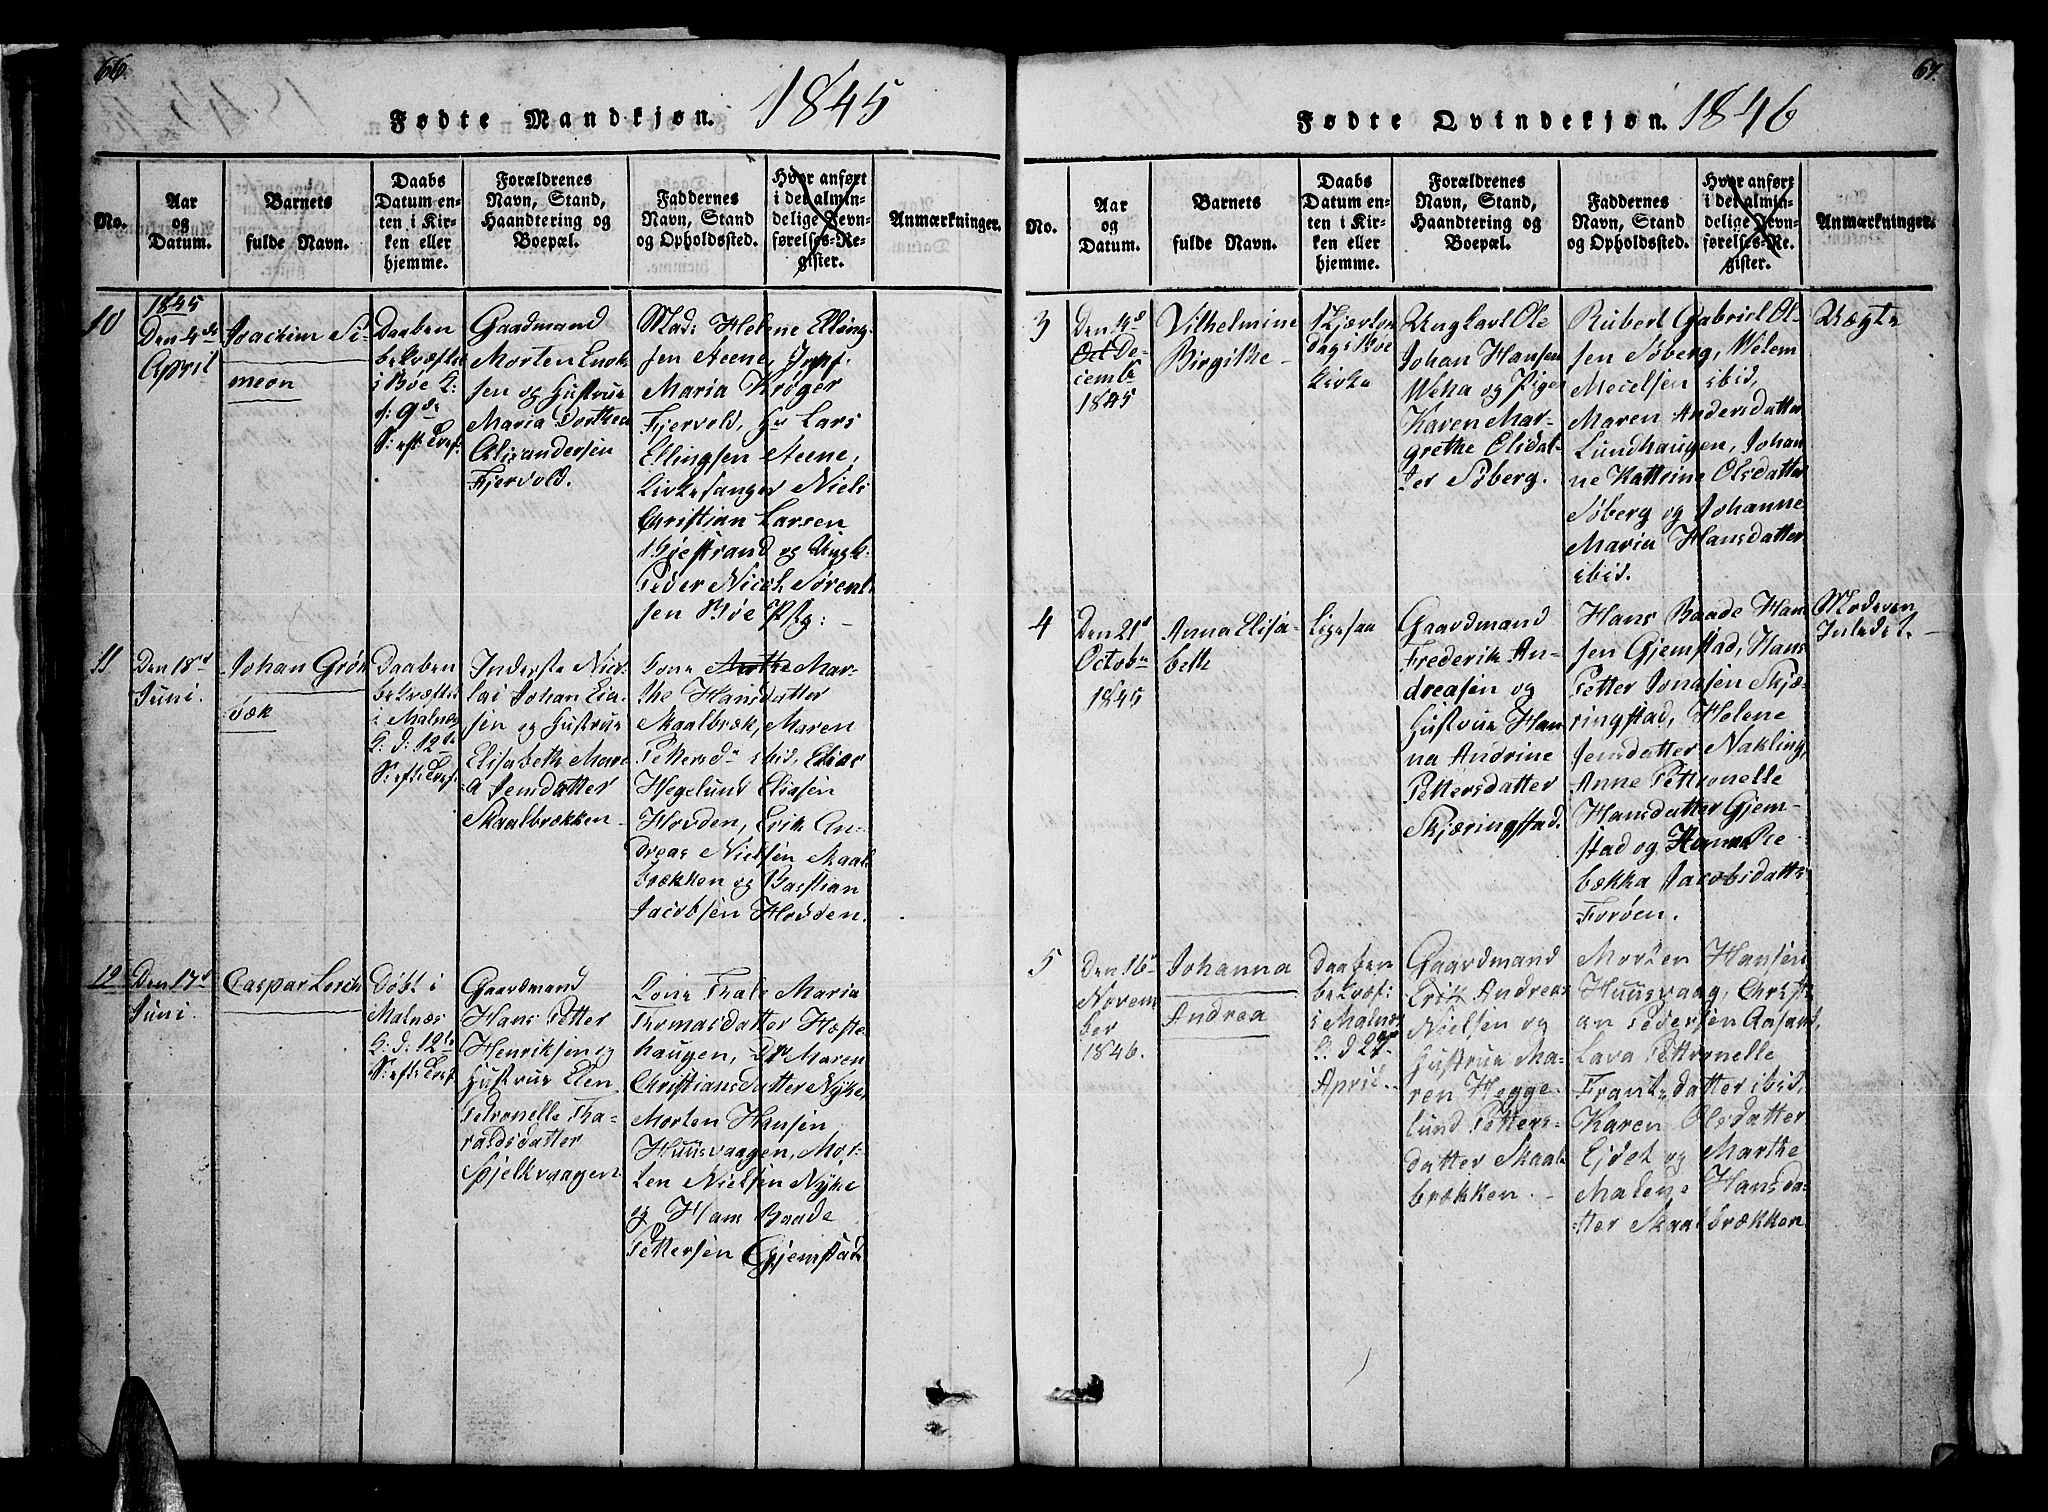 66.
Fødte Mandkjøn. 1845
No.
Aar
og
Datum.
Barnets
fulde Navn.
Daabs
Datum en-
ten i Kir-
ken eller
hjemme.
Forældrenes
Navn, Stand,
Haandtering og
Boepæl.
Faddernes
Navn, Stand
og Opholdssted.
Hvor anført
i det almin-
delige Jevn-
førelses-Re-
gister.
Anmærkninger.
10
1845
Den 4de
April
Joachim Si-
meon
Daaben
bekræftet
i Bøe K:
9de
S: eft: Tref:
Gaardmand
Morten Enok-
sen og Hustrue
Maria Dorthea
Alexandersen
Fjervold.
Mad: Helene Elling-
sen Steene, Jomf.
Maria Krøger
Fjervold, Hr Lars
Ellingsen Steene,
Kirkesanger Niels
Christian Larsen
og Ungk.
Peder Nicol: Sørent-
sen Bøe Pstg: -
11
Den 18d
Juni.
Johan Grøn-
bæk
Daaben
bekræftet
i Malnæs
K: d: 12te
S: eft: Tref:
Inderste Nico-
lai Johan Elia-
sen og Hustrue
Elisabeth Mari-
a Jensdatter
Skaalbrækken -
Kone Mar-
the Hansdatter
Skaalbræk, Maren
Pettersdr ibid, Elias
Hegelund Eliasen
Hovden, Erik An-
dreas Nielsen Skaal-
brækken og Bastian
Jacobsen Hovden.
12
Den 17d
Juni.
Caspar Lorch
Døbt i
Malnæs
K: d: 12te
S: eft: Tref
Gaardmand
Hans Petter
Henriksen og
Hustrue Elen
Petronelle Tha-
raldsdatter
Spjelkvaagen
Kone Thale Maria
Thomasdatter Hæste-
haugen, Do Maren
Christiansdatter Nyke,
Morten Hansen
Huusvaagen, Mor-
ten Nielsen Nyke
og Hans Baade
Pettersen Gjemstad
67.
Fødte Qvindekjøn. 1846
No.
Aar
og
Datum.
Barnets
fulde Navn.
Daabs
Datum en-
ten i Kir-
ken eller
hjemme.
Forældrenes
Navn, Stand,
Haandtering og
Boepæl.
Faddernes
Navn, Stand
og Opholdssted.
Hvor anført
i det almin-
delige Jevn-
førelses-Re-
gister.
Anmærkninger.
3
Den 4d
Oct De-
cemb
1845
Vilhelmine
Birgithe
Skjærtor-
dag i Bøe
Kirke
Ungkarl Ole
Johan Hansen
og Pigen
Karen Mar-
grethe Olsdat-
ter Søberg.
Rubert Gabriel Ol-
sen Søberg, Wilem
ibid,
Maren Andersdatter
Lundhaugen, Johan-
ne Kattrine Olsdatter
Søberg og Johanne
Maria Hansdatter
ibid.
Uægte
4
Den 21d
Octobr
1845
Anna Elisa-
beth
Ligesaa
Gaardmand
Frederik An-
dreasen og
Hustrue Han-
na Andrine
Pettersdatter
Skjæringstad.
Hans Baade Han-
sen Gjemstad, Hans
Petter Jonasen Skjæ-
ringstad, Helene
Jensdatter Nakling,
Anne Pettronelle
Hansdatter Gjem-
stad og Hanna Re-
bækka Jacobsdatter
Forøen.
Moderen
Inledet. -
5
Den 16d
Novem
ber
1846.
Johanna
Andrea
Daaben
bekræft
i Malnæs
K. d 29
April.
Gaardmand
Erik Andreas
Nielsen og
Hustrue Ma-
ren Hegge-
lund Petters-
datter Skaal-
brækken. -
Morten Hansen
Huusvaag, Christi-
an Pedersen Aasand,
Lava Pettronelle
Frantzdatter ibid,
Karen Olsdatter
Ejdet og Marthe
Malene Hansda-
tter Skaalbrækken